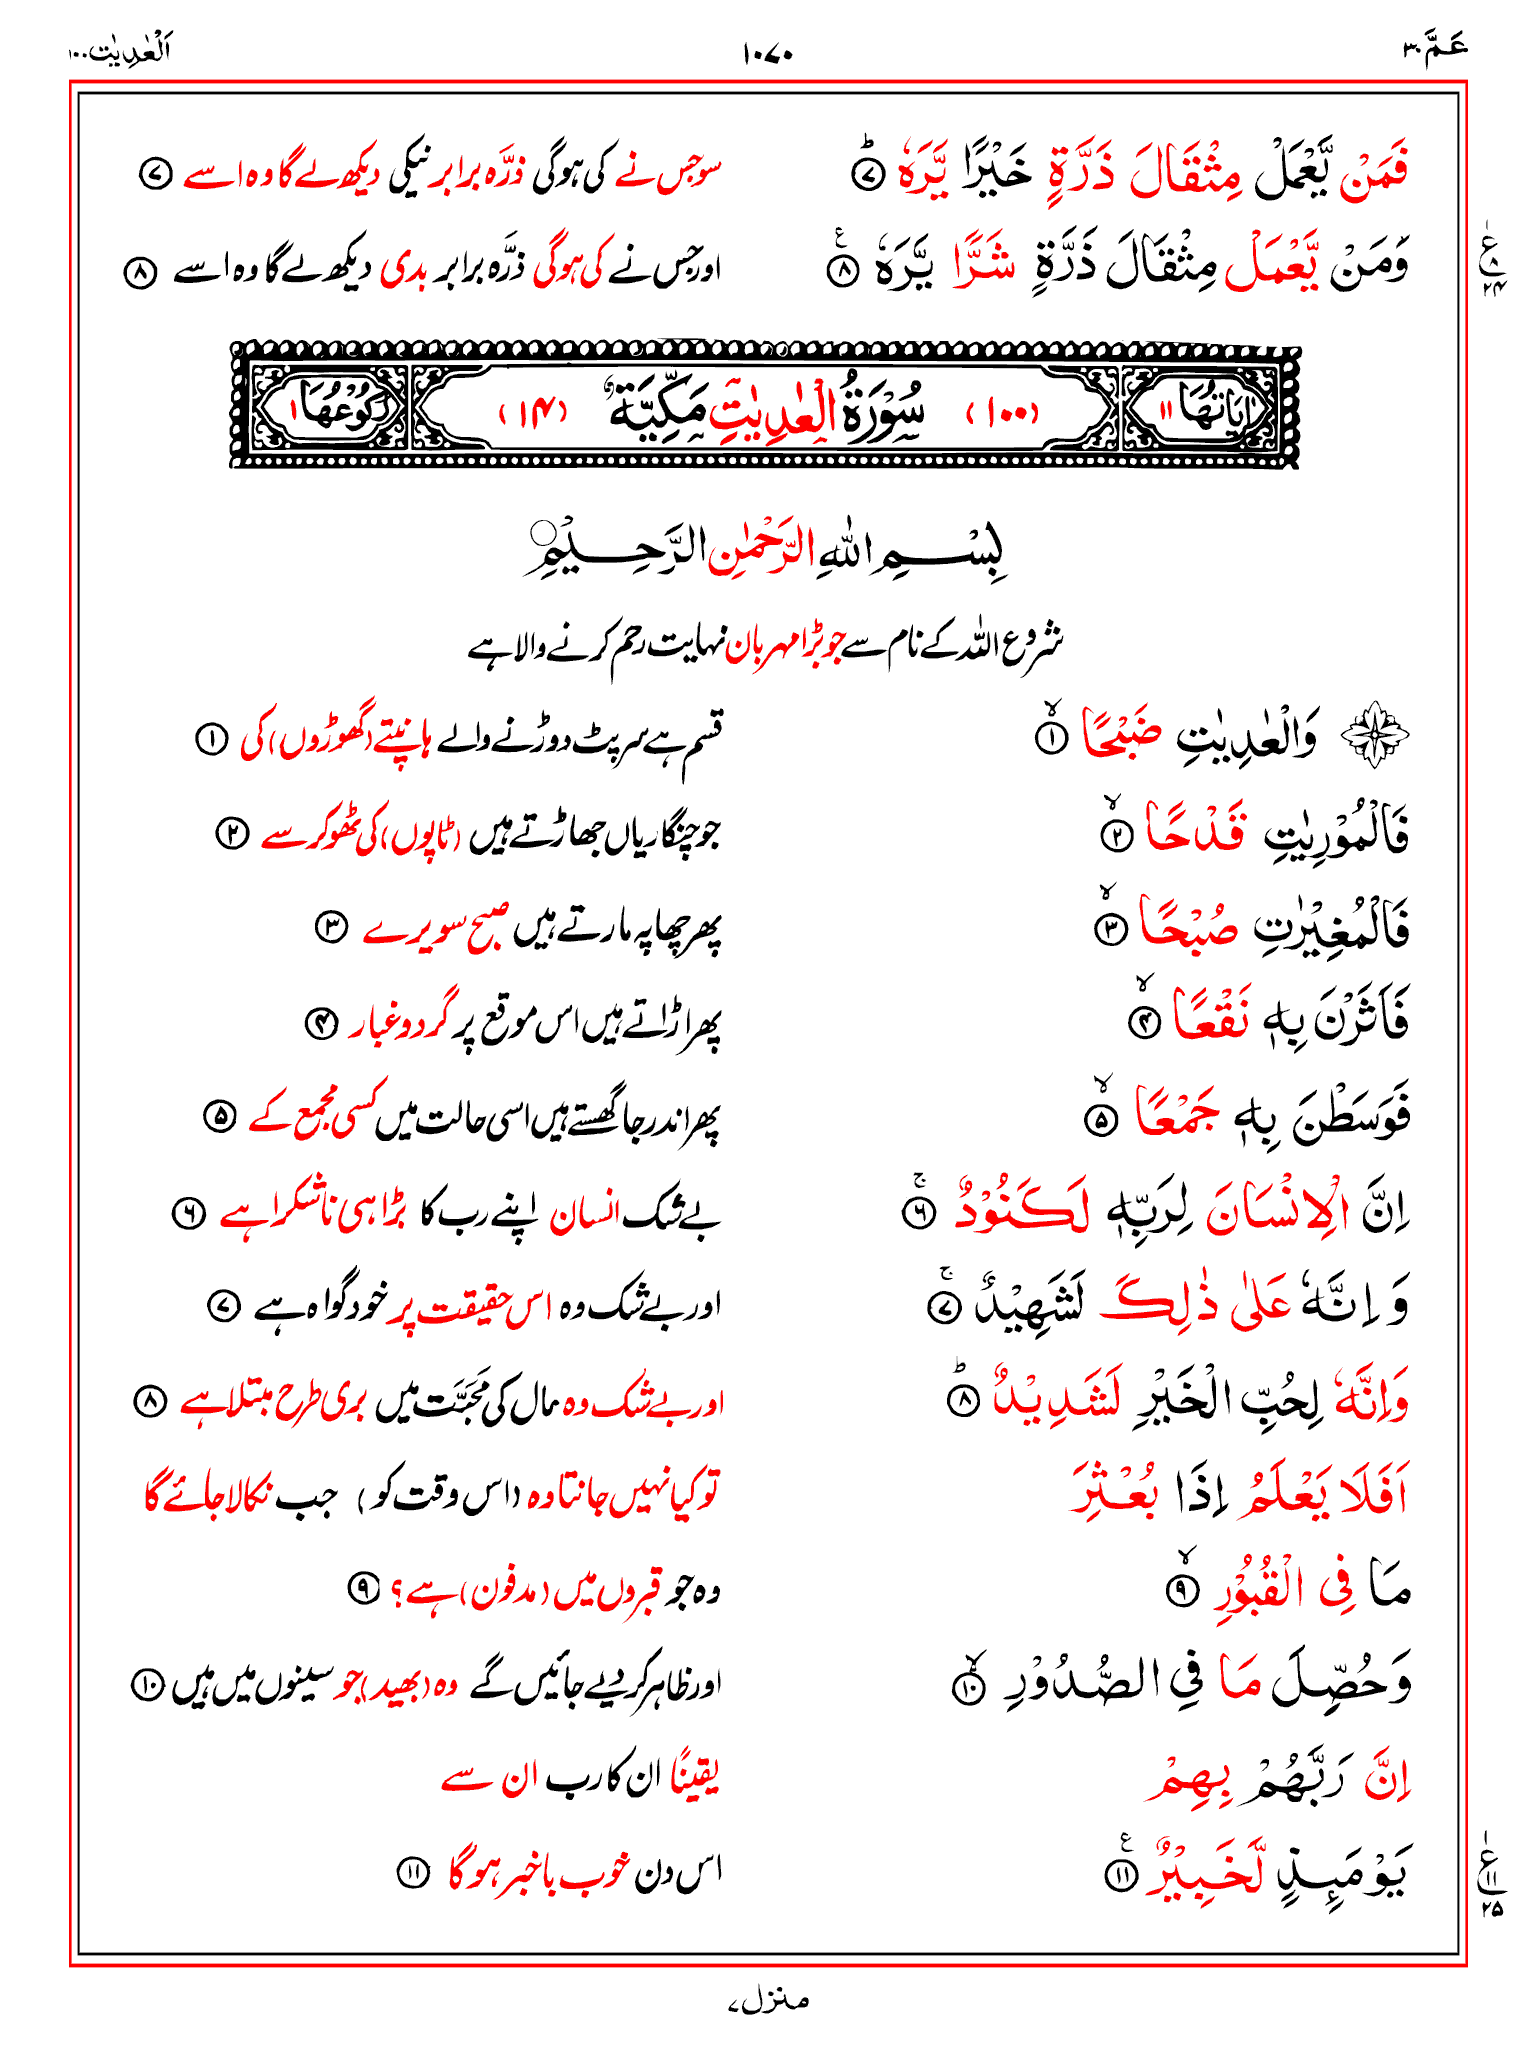 عَمَّ ٣٠
١٠٧٠
اَلْعٰدِيٰت ١٠٠
فَمَنْ يَّعْمَلْ مِثْقَالَ ذَرَّةٍ خَيْرًا يَّرَهٗ ؕ ٧
سو جس نے کی ہوگی ذرَّہ برابر نیکی دیکھ لے گا وہ اسے ٧
وَمَنْ يَّعْمَلْ مِثْقَالَ ذَرَّةٍ شَرًّا يَّرَهٗ ٨ ع
اور جس نے کی ہوگی ذرَّہ برابر بدی دیکھ لے گا وہ اسے ٨
ع ٨ ٢٤
اٰيَاتُهَا ١١
(١٠٠) سُوْرَةُ الْعٰدِيٰتِ مَكِّيَّةٌ (١٤)
رُكُوْعُهَا ١
بِسْمِ اللهِ الرَّحْمٰنِ الرَّحِيْمِ
شروع اللہ کے نام سے جو بڑا مہربان نہایت رحم کرنے والا ہے
وَالْعٰدِيٰتِ ضَبْحًا ۙ ١
قسم ہے سرپٹ دوڑنے والے ہانپتے (گھوڑوں) کی ١
فَالْمُوْرِيٰتِ قَدْحًا ۙ ٢
جو چنگاریاں جھاڑتے ہیں (ٹاپوں) کی ٹھوکر سے ٢
فَالْمُغِيْرٰتِ صُبْحًا ۙ ٣
پھر چھاپہ مارتے ہیں صبح سویرے ٣
فَاَثَرْنَ بِهٖ نَقْعًا ۙ ٤
پھر اڑاتے ہیں اس موقع پر گرد و غبار ۴
فَوَسَطْنَ بِهٖ جَمْعًا ۙ ٥
پھر اندر جا گھستے ہیں اسی حالت میں کسی مجمع کے ۵
اِنَّ الْاِنْسَانَ لِرَبِّهٖ لَكَنُوْدٌ ۚ ٦
بے شک انسان اپنے رب کا بڑا ہی ناشکرا ہے ۶
وَ اِنَّهٗ عَلٰى ذٰلِكَ لَشَهِيْدٌ ۚ ٧
اور بے شک وہ اس حقیقت پر خود گواہ ہے ٧
وَاِنَّهٗ لِحُبِّ الْخَيْرِ لَشَدِيْدٌ ؕ ٨
اور بے شک وہ مال کی محبَّت میں بری طرح مبتلا ہے ٨
اَفَلَا يَعْلَمُ اِذَا بُعْثِرَ
تو کیا نہیں جانتا وہ (اس وقت کو) جب نکالا جائے گا
مَا فِى الْقُبُوْرِ ۙ ٩
وہ جو قبروں میں (مدفون) ہے؟ ٩
وَحُصِّلَ مَا فِى الصُّدُوْرِ ۙ ١٠
اور ظاہر کر دیے جائیں گے وہ (بھید) جو سینوں میں ہیں ١٠
اِنَّ رَبَّهُمْ بِهِمْ
یقینًا ان کا رب ان سے
يَوْمَئِذٍ لَّخَبِيْرٌ ١١ ع
اس دن خوب باخبر ہوگا ١١
ع ١١ ٢٥
منزل ٧